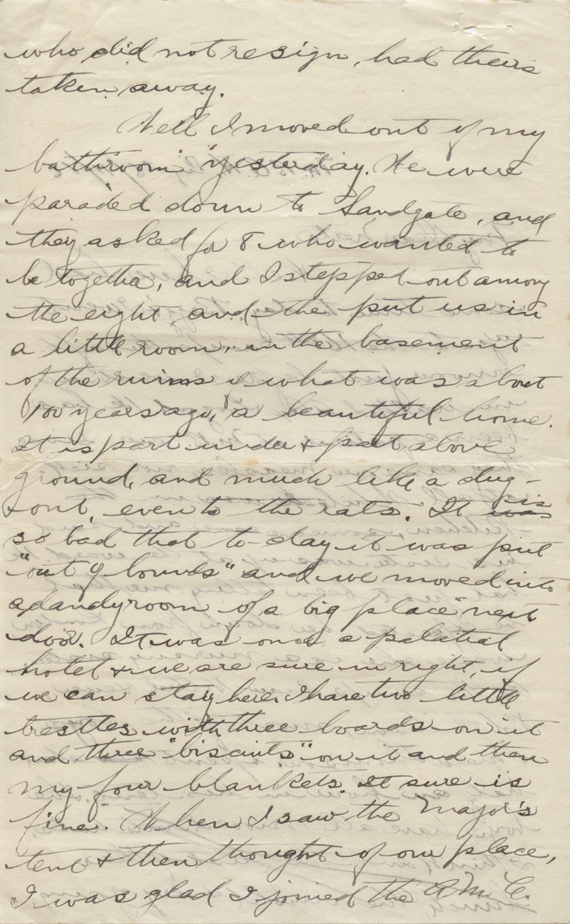 who did not resign, had theirs
taken away.
Well I moved out of my
"bathroom" yesterday. We were
paraded down to Sandgate, and
they asked for 8 who wanted to
be together, and I stepped out among
the eight and the put us in
a little room, in the basement
of the ruins of what was about
100 years ago, a beautiful home.
It is part under & part above
ground, and much like a dug-
out, even to the rats. It is
so bad that to-day it was put
"out of bounds" and we moved into
a dandy room of a big place next
door. It was once a palatial
hotel & we are sure in right, if
we can stay here. I have two little
trestles with three boards on it
and three "biscuits" on it and then
my four blankets. It sure is
fine. When I saw the Major's
tent & then thought of our place,
I was glad I joined the A.M.C.